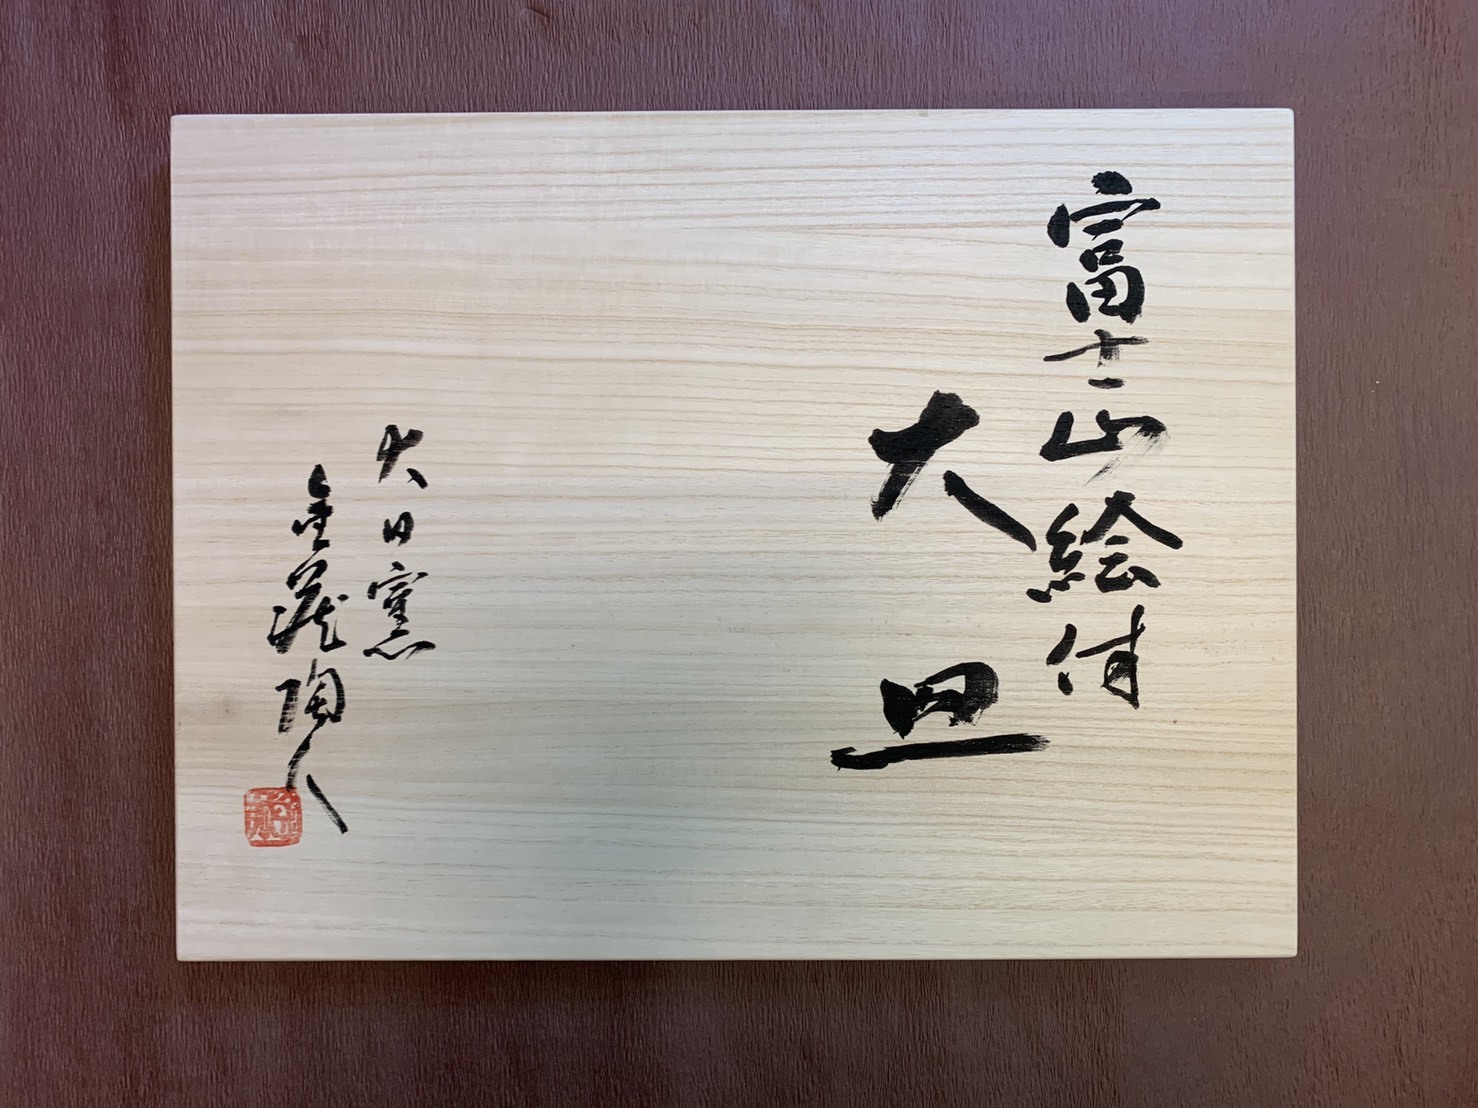 富士山絵付
大皿
大日窯
金蔵陶人